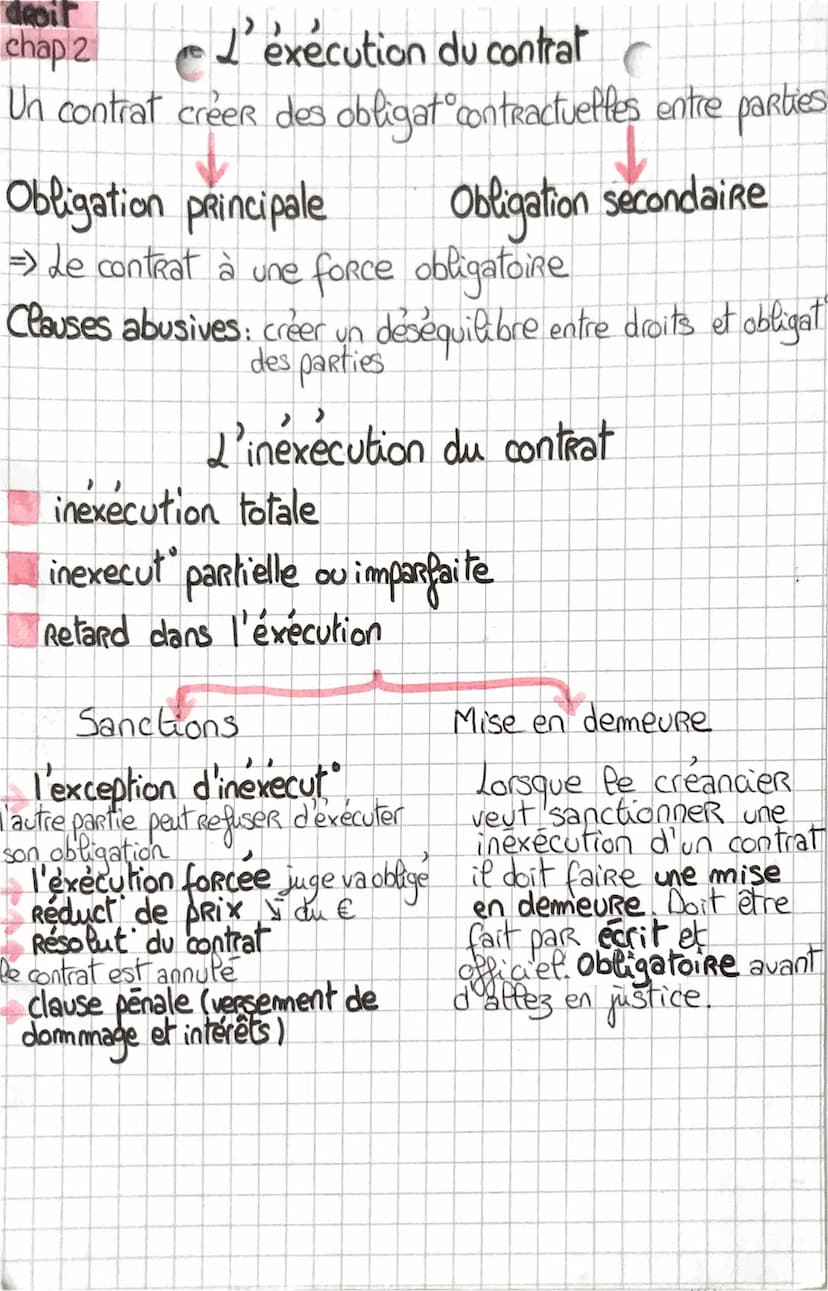 droit
chap 2
L'éxécution du contrat
Un contrat créer des obligat° contractuelles entre parties
Obligation principale
Obligation secondaire
=> Le contrat à une force obligatoire
Clauses abusives : créer un déséquilibre entre droits et obligat°
des parties
L'inéxécution du contrat
inéxécution totale
inexecut° partielle ou imparfaite
Retard dans l'éxécution
Sanctions
l'exception d'inéxécut°
l'autre partie peut refuser d'éxécuter
son obligation
l'éxécution forcée juge va obligé
Réduct° de prix ↘ du €
Résolut° du contrat
le contrat est annulé
clause pénale (versement de
dommage et intérêts)
Mise en demeure
Lorsque le créancier
veut sanctionner une
inéxécution d'un contrat
il doit faire une mise
en demeure. Doit être
fait par écrit et
officiel. Obligatoire avant
d'allez en justice.